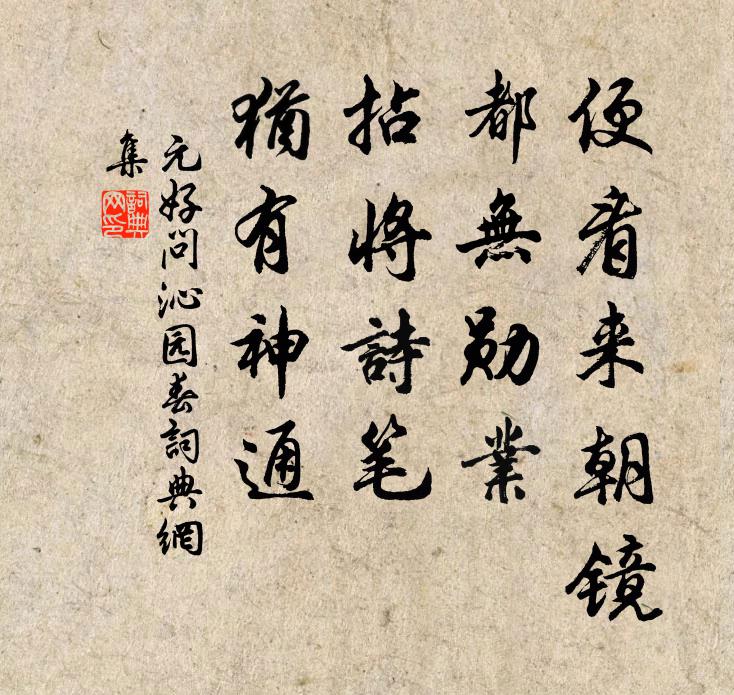 便看来朝镜
都無勋業
拈將詩笔
猶有神通
元好问沁园春詞典網
集
詞典
网印